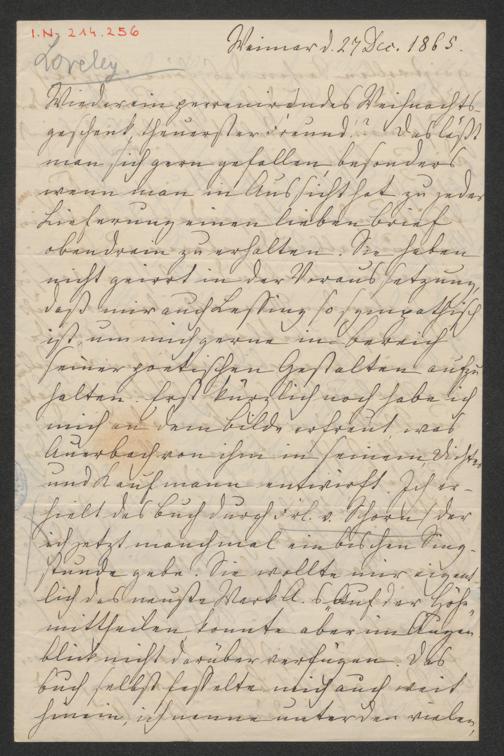 I.N. 214.256
Loreley.
Weimar d. 27 Dec. 1865.
Wieder ein perrenirendes Weihnachts
geschenk, theuerster Freund!? Das läßt
man sich gern gefallen, besonders
wenn man in Aussicht hat zu jeder
Lieferung einen lieben Brief
obendrein zu erhalten. Sie haben
nicht geirrt in der Voraussetzung,
daß mir auch Lessing so sympathisch
ist, um mich gerne im Bereich
seiner poetischen Gestalten aufzu
halten. Erst kürzlich noch habe ich
mich an dem Bilde erfreut was
Auerbach von ihm in seinem Dichter
und Kaufmann entwirft. Ich er-
hielt das Buch durch Frl. v. Schorn, der
ich jetzt manchmal ein bischen Sing-
stunde gebe. Sie wollte mir eigent
lich das neuste Werk A.s „Auf der Höhe"
mittheilen, konnte aber im Augen
blick nicht darüber verfügen. Das
Buch selbst fesselte mich auch weit
hinein, ich nenne unter den vielen,